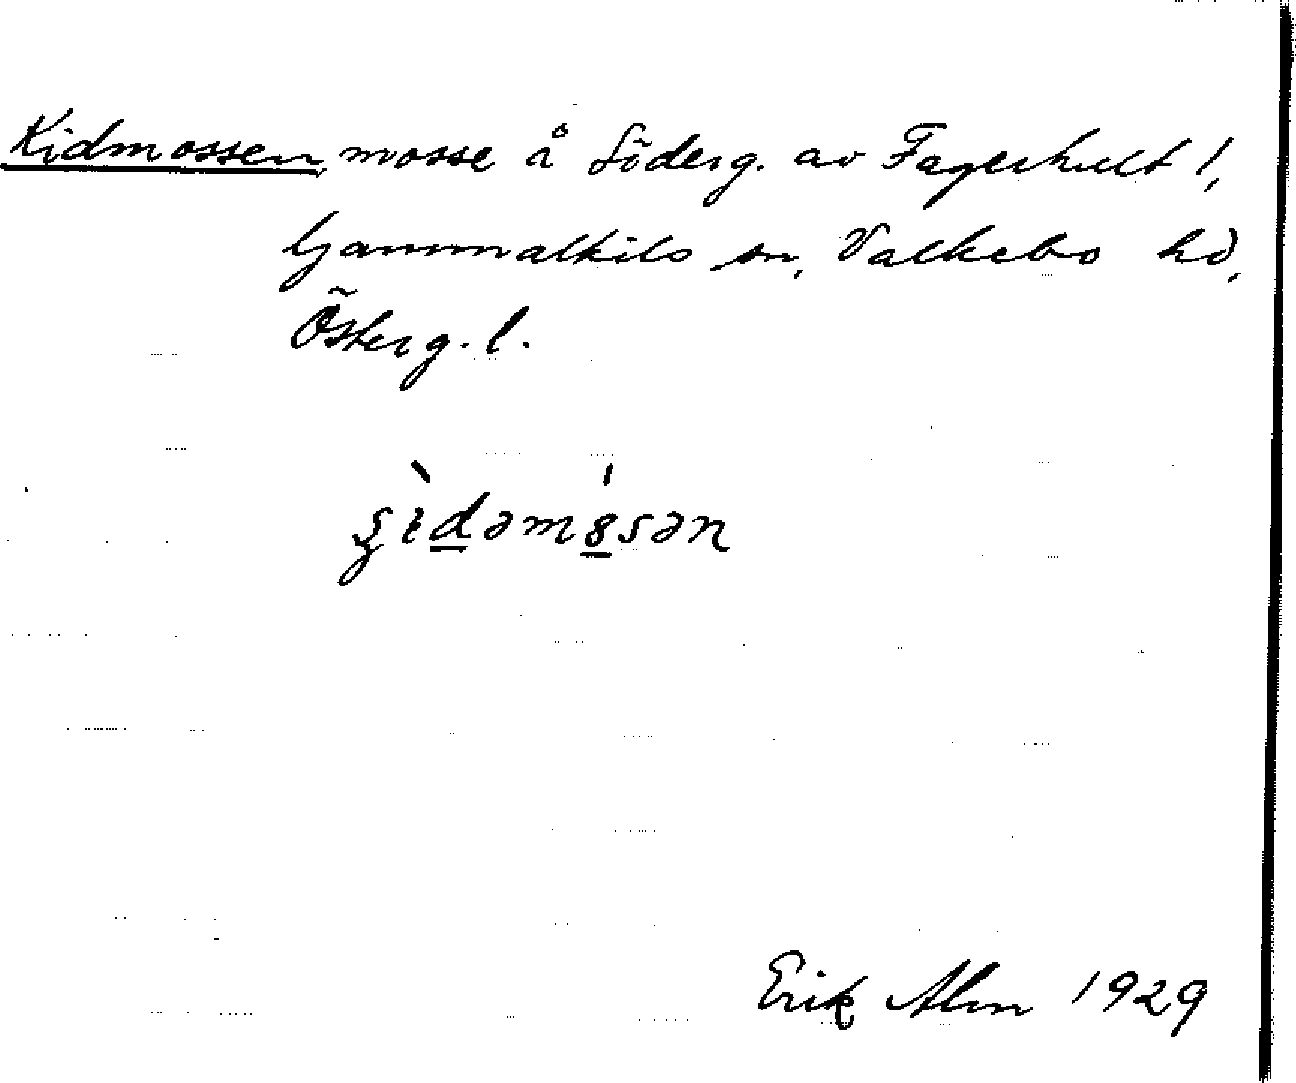 Kidmossen, mosse å Söderg. av Fagerhult 1,
Gammalkils sn, Valkebo hd,
Österg. l.
Erik Alm 1929